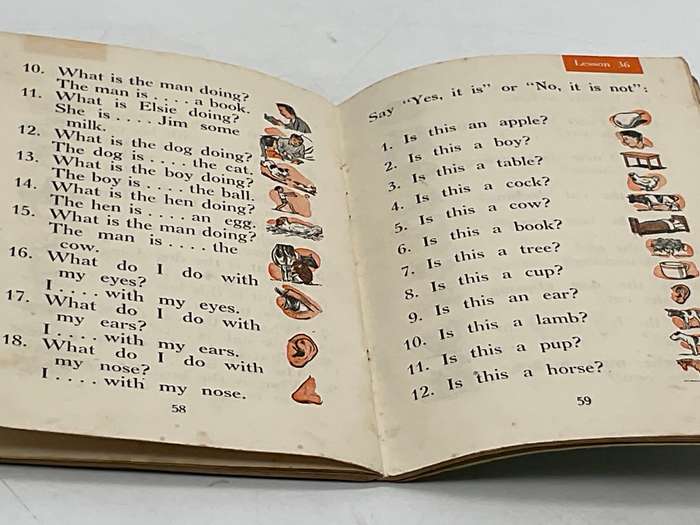 10. What is the man doing?
The man is . . . . a book.
11. What is Elsie doing?
She is . . . . Jim some
milk.
12. What is the dog doing?
The dog is . . . . the cat.
13. What is the boy doing?
The boy is . . . . the ball.
14. What is the hen doing?
The hen is . . . . an egg.
15. What is the man doing?
The man is . . . . the
cow.
16. What do I do with
my eyes?
I . . . . with my eyes.
17. What do I do with
my ears?
I . . . . with my ears.
18. What do I do with
my nose?
I . . . . with my nose.
58
Lesson 36
Say "Yes, it is" or "No, it is not":
1. Is this an apple?
2. Is this a boy?
3. Is this a table?
4. Is this a cock?
5. Is this a cow?
6. Is this a book?
7. Is this a tree?
8. Is this a cup?
9. Is this an ear?
10. Is this a lamb?
11. Is this a pup?
12. Is this a horse?
59